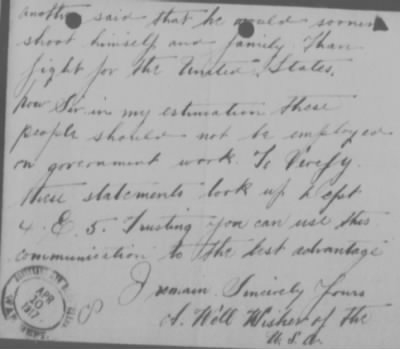 another said that he would sooner
shoot himself and family than
fight for the United States.
Now Sir in my estimation these
people should not be employed
on government work. To Verify
these statements look up Dept
4. E. 5. Trusting you can use this
communication to the best advantage
I remain Sincerely Yours
A. Well Wisher of the
U.S.A.
APR
10
1917